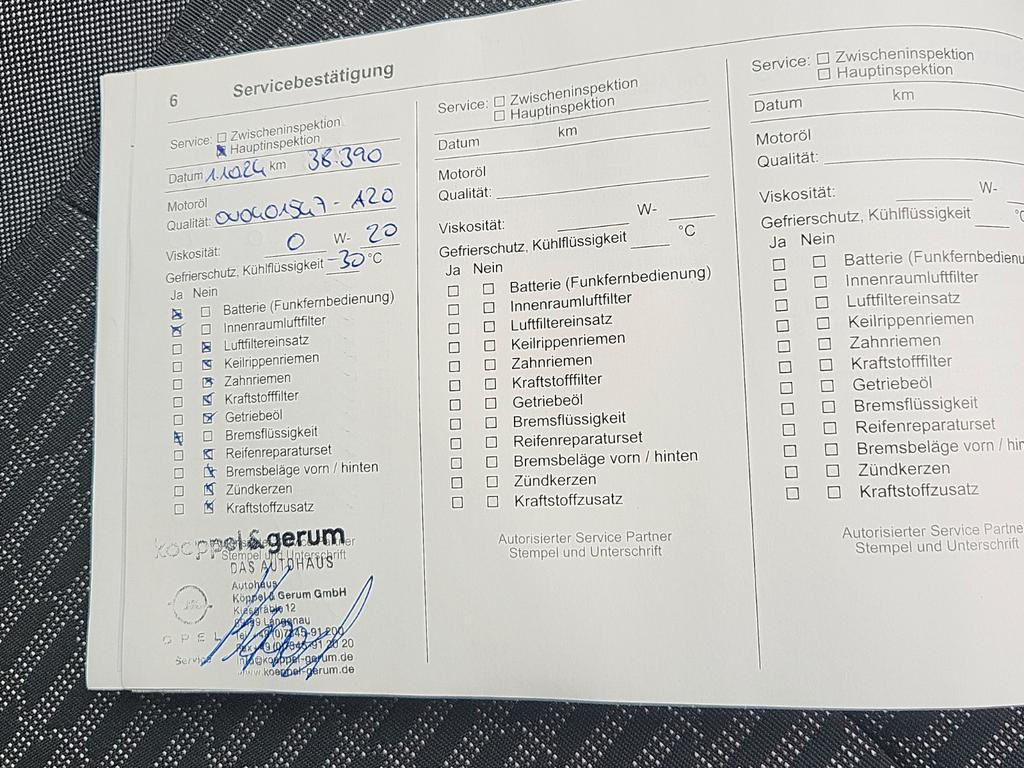 6 Servicebestätigung
Service: ☐ Zwischeninspektion
☒ Hauptinspektion
Datum 1.1024 km 38.390
Motoröl
Qualität: OV0401547-A20
Viskosität: 0 W- 20
Gefrierschutz, Kühlflüssigkeit -30 °C
Ja Nein
☒ ☐ Batterie (Funkfernbedienung)
☒ ☐ Innenraumluftfilter
☐ ☒ Luftfiltereinsatz
☐ ☒ Keilrippenriemen
☐ ☒ Zahnriemen
☐ ☒ Kraftstofffilter
☐ ☒ Getriebeöl
☒ ☐ Bremsflüssigkeit
☐ ☒ Reifenreparaturset
☐ ☒ Bremsbeläge vorn / hinten
☐ ☒ Zündkerzen
☐ ☒ Kraftstoffzusatz
Autorisierter Service Partner
Stempel und Unterschrift
koeppel & gerum
DAS AUTOHAUS
Autohaus
Köppel & Gerum GmbH
Kiesgräble 12
Langenau
Tel. +49 (0)7345-91 200
Fax +49 (0)7345-91 20 20
info@koeppel-gerum.de
www.koeppel-gerum.de
OPEL
Service
Service: ☐ Zwischeninspektion
☐ Hauptinspektion
Datum km
Motoröl
Qualität:
Viskosität: W-
Gefrierschutz, Kühlflüssigkeit °C
Ja Nein
☐ ☐ Batterie (Funkfernbedienung)
☐ ☐ Innenraumluftfilter
☐ ☐ Luftfiltereinsatz
☐ ☐ Keilrippenriemen
☐ ☐ Zahnriemen
☐ ☐ Kraftstofffilter
☐ ☐ Getriebeöl
☐ ☐ Bremsflüssigkeit
☐ ☐ Reifenreparaturset
☐ ☐ Bremsbeläge vorn / hinten
☐ ☐ Zündkerzen
☐ ☐ Kraftstoffzusatz
Autorisierter Service Partner
Stempel und Unterschrift
Service: ☐ Zwischeninspektion
☐ Hauptinspektion
Datum km
Motoröl
Qualität:
Viskosität: W-
Gefrierschutz, Kühlflüssigkeit °C
Ja Nein
☐ ☐ Batterie (Funkfernbedienu
☐ ☐ Innenraumluftfilter
☐ ☐ Luftfiltereinsatz
☐ ☐ Keilrippenriemen
☐ ☐ Zahnriemen
☐ ☐ Kraftstofffilter
☐ ☐ Getriebeöl
☐ ☐ Bremsflüssigkeit
☐ ☐ Reifenreparaturset
☐ ☐ Bremsbeläge vorn / hin
☐ ☐ Zündkerzen
☐ ☐ Kraftstoffzusatz
Autorisierter Service Partne
Stempel und Unterschrift